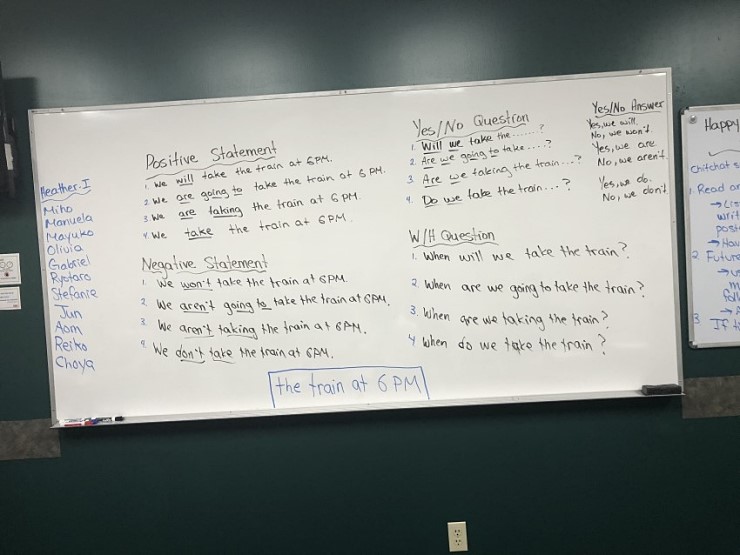 Heather.I
Miho
Manuela
Mayuko
Olivia
Gabriel
Ryotaro
Stefanie
Jun
Aom
Reiko
Choya
Positive Statement
1. We will take the train at 6PM.
2. We are going to take the train at 6 PM.
3. We are taking the train at 6 PM.
4. We take the train at 6 PM.
Negative Statement
1. We won't take the train at 6PM.
2. We aren't going to take the train at 6PM.
3. We aren't taking the train at 6PM.
4. We don't take the train at 6PM.
Yes/No Question
1. Will we take the.......?
2. Are we going to take....?
3. Are we taking the train...?
4. Do we take the train...?
Yes/No Answer
Yes, we will.
No, we won't.
Yes, we are.
No, we aren't.
Yes, we do.
No, we don't.
W/H Question
1. When will we take the train?
2. When are we going to take the train?
3. When are we taking the train?
4 When do we take the train?
the train at 6 PM
Happy
Chitchat
1. Read
writ
post
2. Future
3 If